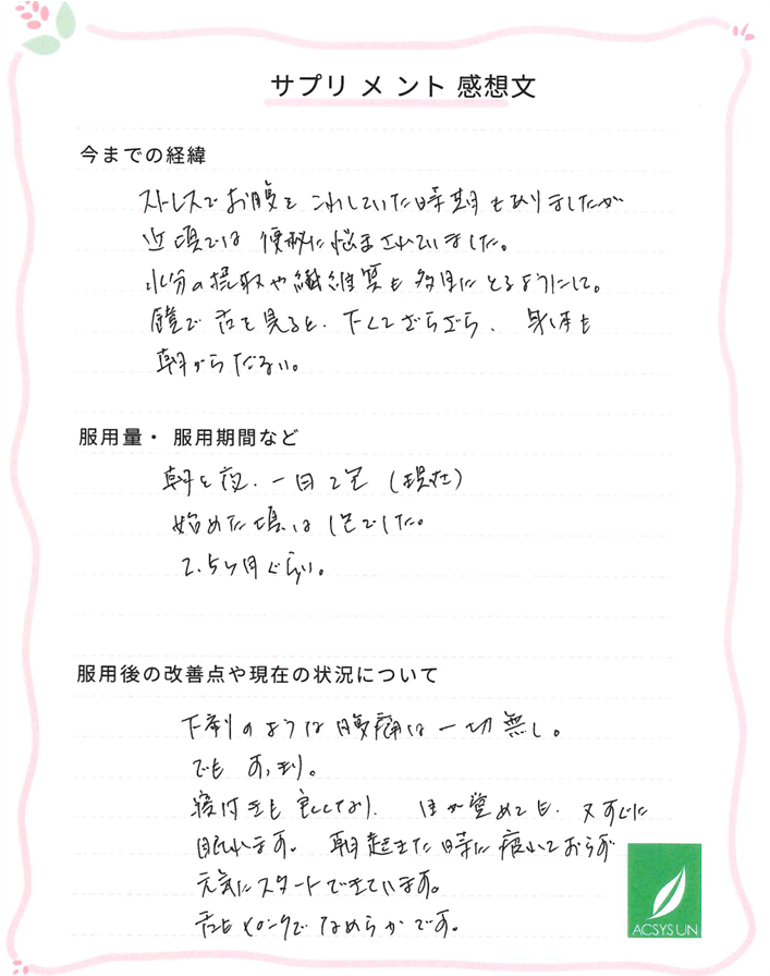 サプリメント 感想文
今までの経緯
ストレスでお腹をこわしていた時期もありましたが
近頃では便秘に悩まされていました。
水分の摂取や繊維質も多目にとるようにして。
鏡で舌を見ると、下くてざらざら、身体も
朝からだるい。
服用量・服用期間など
朝と夜、一日2包(現在)
始めた頃は1包でした。
2.5ヶ月ぐらい。
服用後の改善点や現在の状況について
下剤のような腹痛は一切無し。
でもすっきり。
寝付きも良くしており、目が覚めても、又すぐに
眠れます。朝起きた時に疲れておらず
元気にスタートできています。
舌もピンクでなめらかです。
ACSYSUN